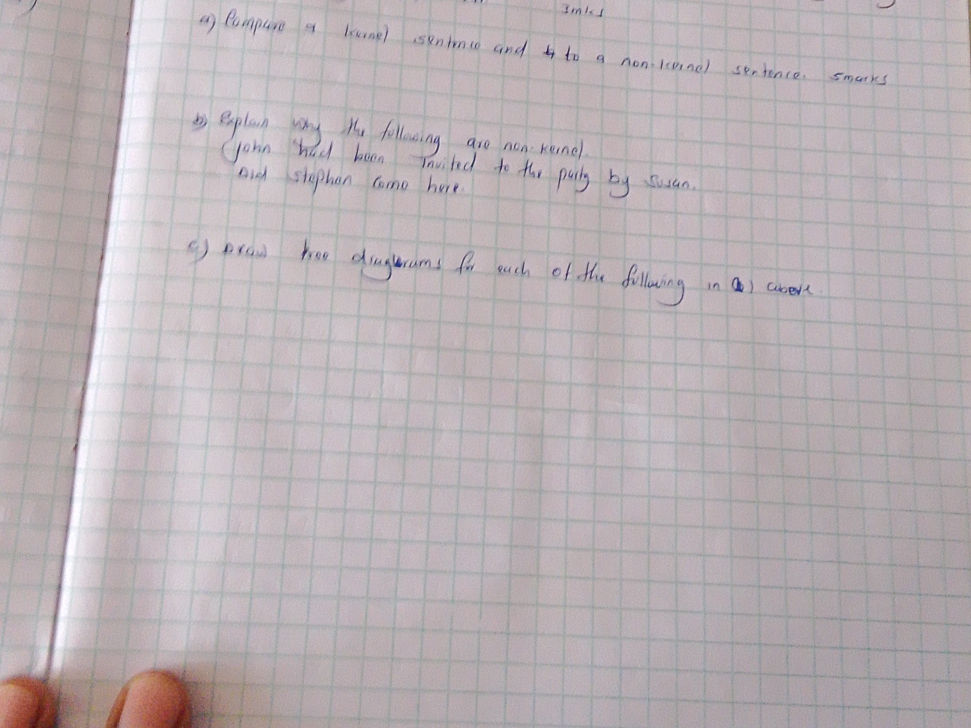 3mks
a) Compare a kernel sentence and to a non-kernel sentence. 5marks
b) Explain why the following are non-kernel.
John had been invited to the party by Susan.
Did Stephen come here.
c) Draw tree diagrams for each of the following in b) above